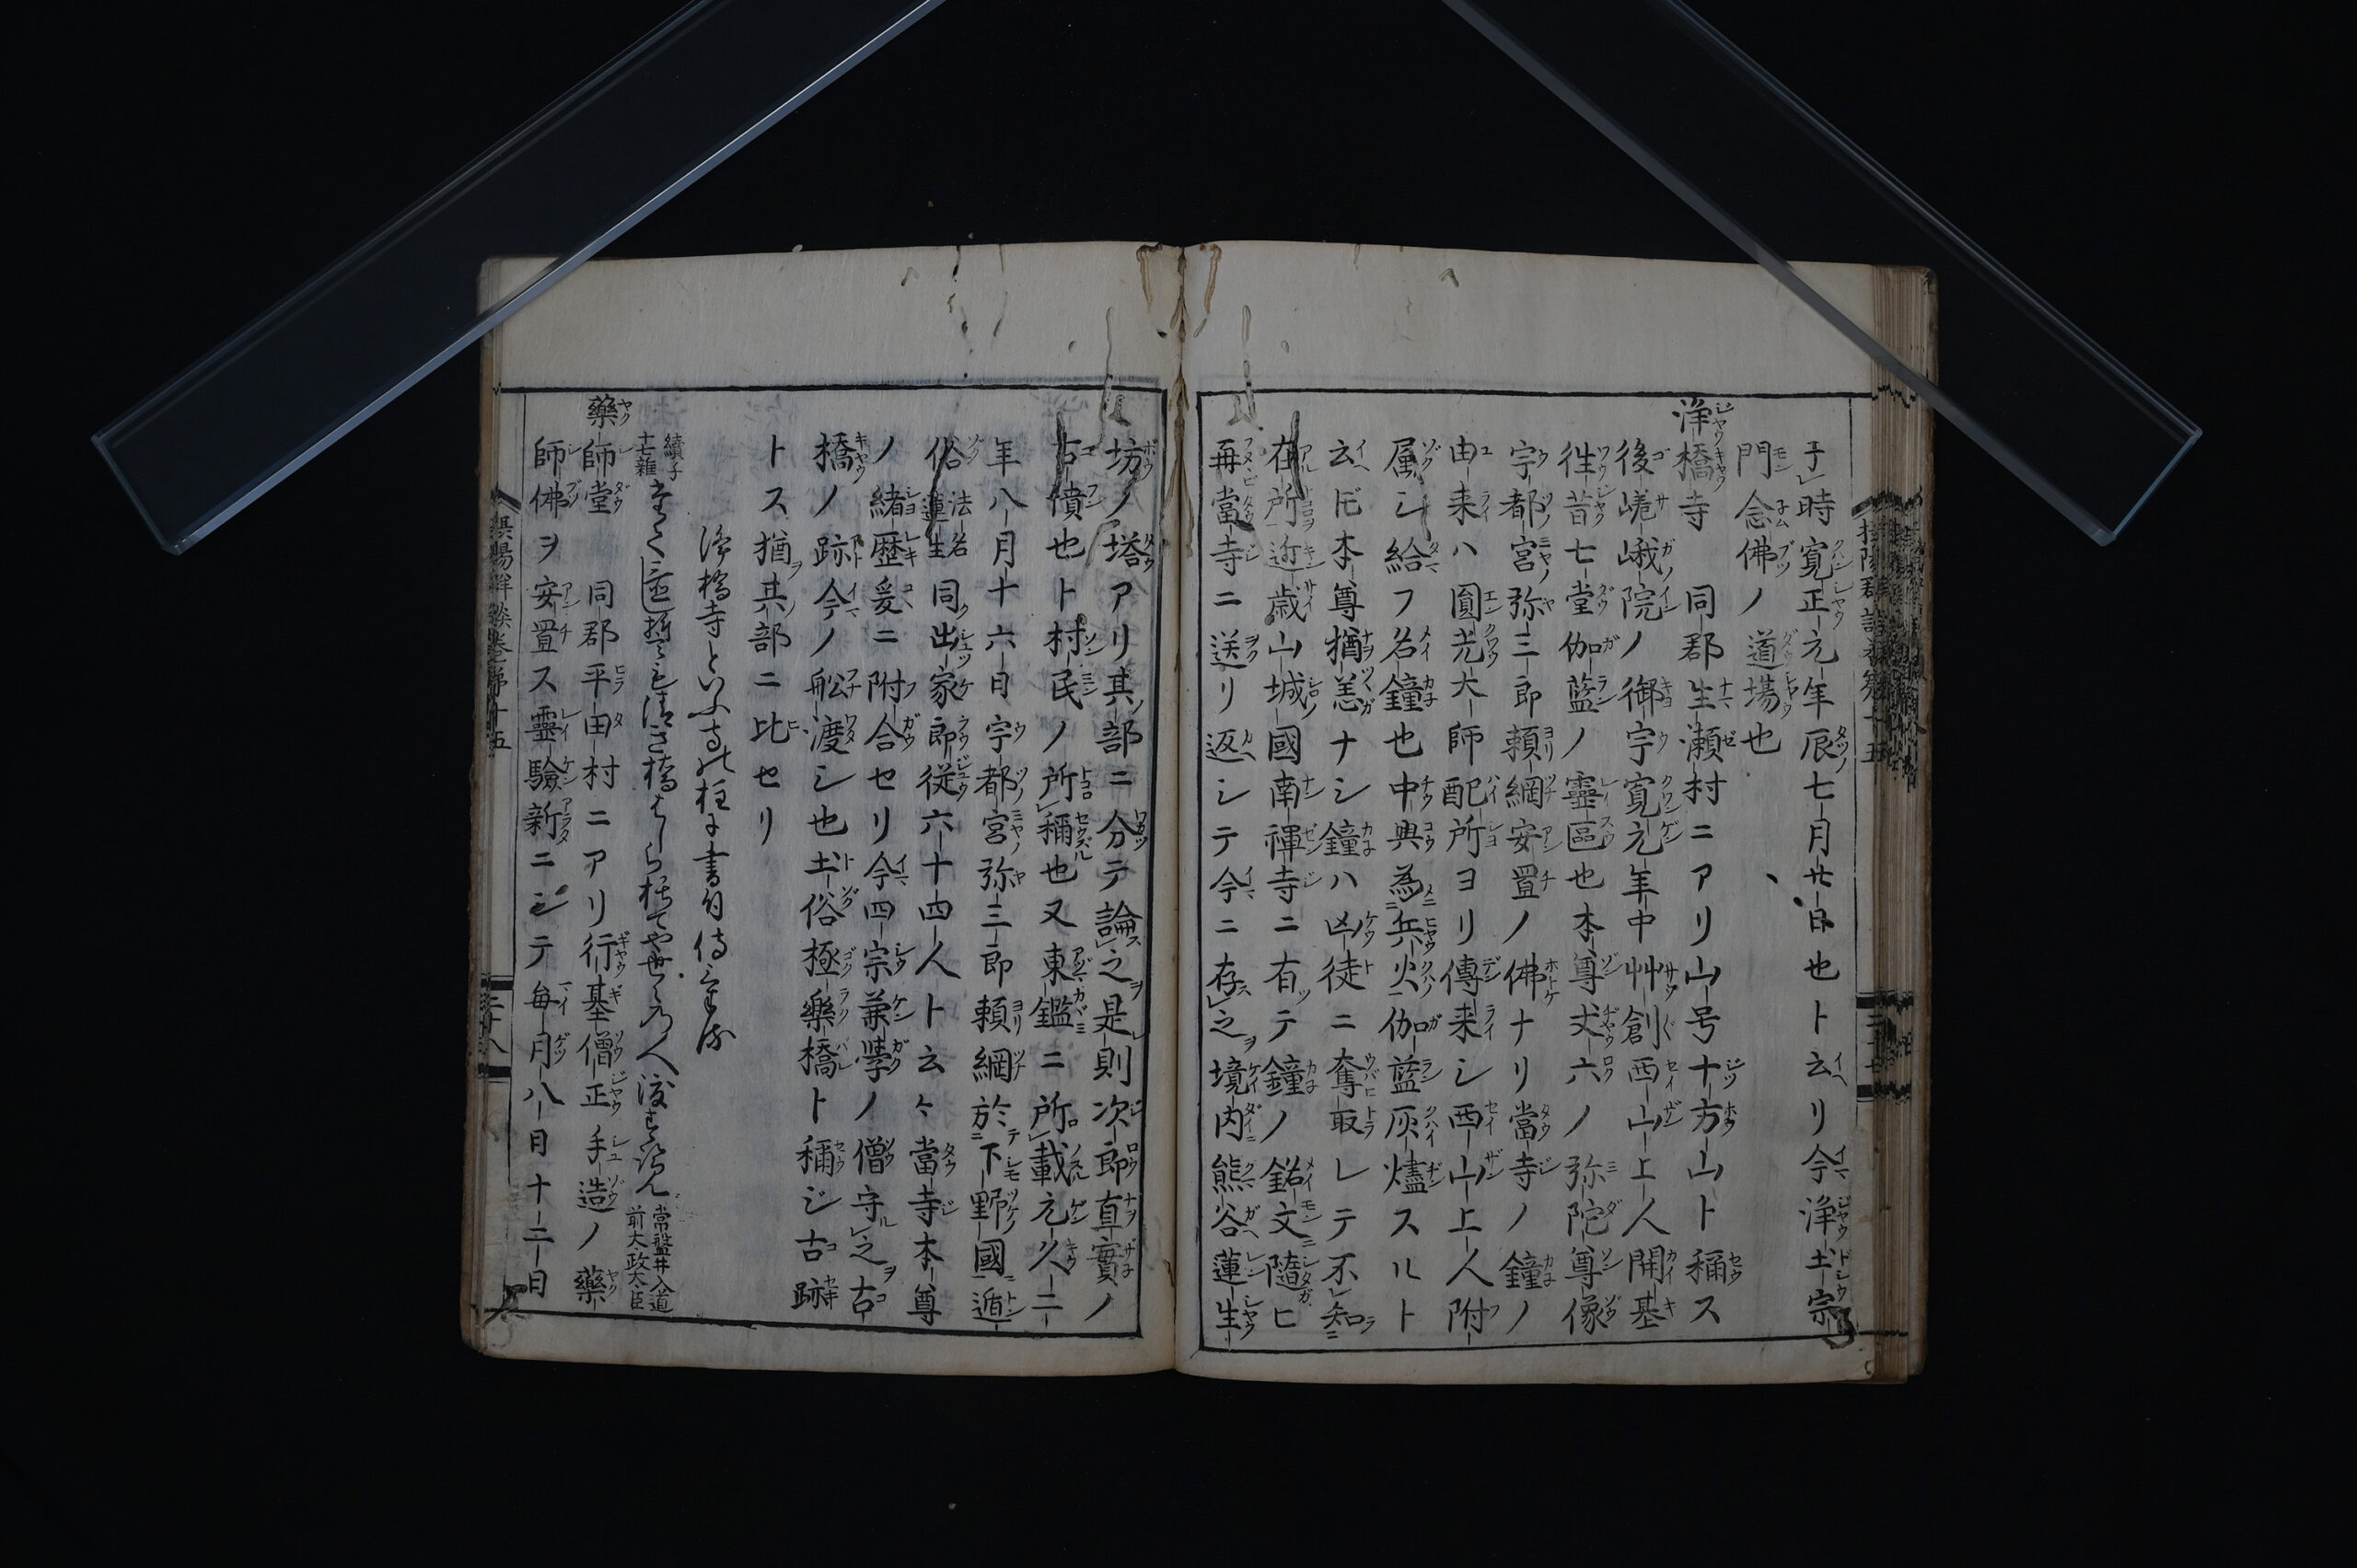 于時寛正元年辰七月廿日也ト云リ今浄土宗
門念佛ノ道場也
浄橋寺　同郡生瀬村ニアリ山号十方山ト稱ス
後嵯峨院ノ御宇寛元年中艸創西山上人開基
徃昔七堂伽藍ノ靈區也本尊丈六ノ弥陀尊像
宇都宮弥三郎頼綱安置ノ佛ナリ當寺ノ鐘ノ
由来ハ圓光大師配所ヨリ傳来シ西山上人附
属シ給フ名鐘也中興為兵火伽藍灰燼スルト
云ドモ本尊猶恙ナシ鐘ハ凶徒ニ奪取レテ不知
在所近歳山城國南禪寺ニ有テ鐘ノ銘文隨ヒ
再當寺ニ送リ返シテ今ニ存之境内熊谷蓮生
坊ノ塔アリ其部ニ分テ論之是則次郎直實ノ
古墳也ト村民ノ所稱也又東鑑ニ所載元久二
年八月十六日宇都宮弥三郎頼綱於下野國遁
俗法名蓮生同出家郎従六十四人ト云々當寺本尊
ノ緒歴爰ニ附合セリ今四宗兼學ノ僧守之古
橋ノ跡今ノ舩渡シ也土俗極樂橋ト稱シ古跡
トス猶其部ニ比セリ
浄橋寺といふ寺の柱に書付侍
續千十七雜　常盤井入道前太政大臣
藥師堂　同郡平田村ニアリ行基僧正手造ノ藥
師佛ヲ安置ス靈驗新ニシテ毎月八日十二日